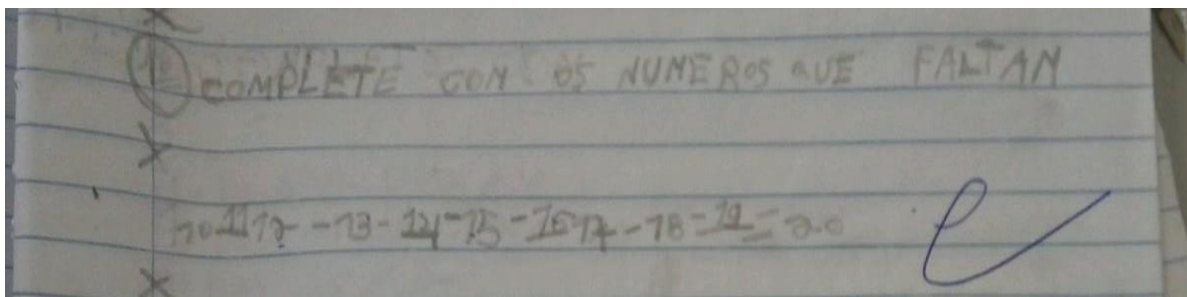 COMPLETE CON OS NUMEROS QUE FALTAN
10 11 12 - - 13 - 14 - 15 - 16 17 - - 18 - 19 - 20